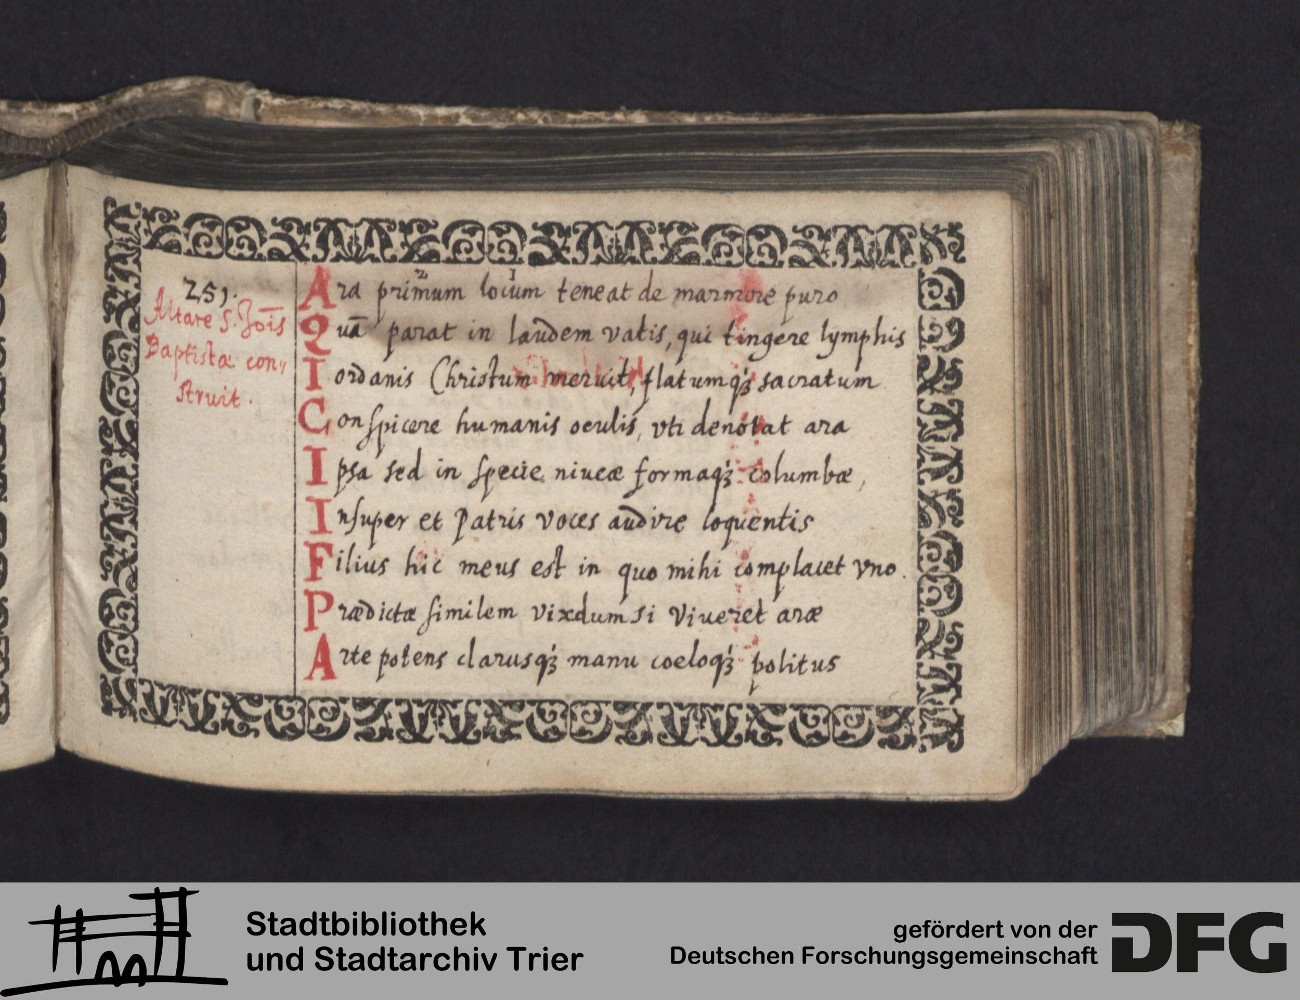 251.
Altare S. Joīs
Baptistæ con„
struit.
Ara primum locum teneat de marmore puro
Quā parat in laudem vatis, qui tingere lymphis
Iordanis Christum meruit, flatumqꝫ sacratum
Conspicere humanis oculis, vti denotat ara
Ipsa sed in specie niueæ formaqꝫ columbæ,
Insuper et Patris voces audire loquentis
Filius hic meus est in quo mihi complacet vno.
Prædictæ similem vixdum si viueret aræ
Arte potens clarusqꝫ manu coeloqꝫ politus
Stadtbibliothek
und Stadtarchiv Trier
gefördert von der
Deutschen Forschungsgemeinschaft
DFG